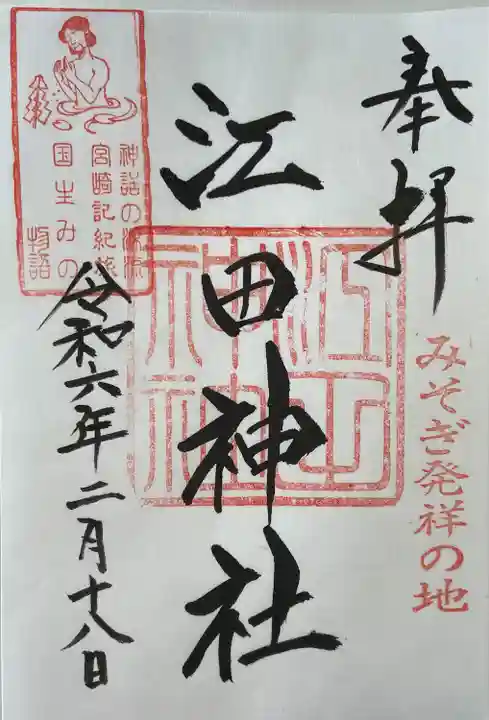 奉拝
みそぎ発祥の地
江田神社
神話の源流
宮崎記紀旅
国生みの
物語
令和六年二月十八日